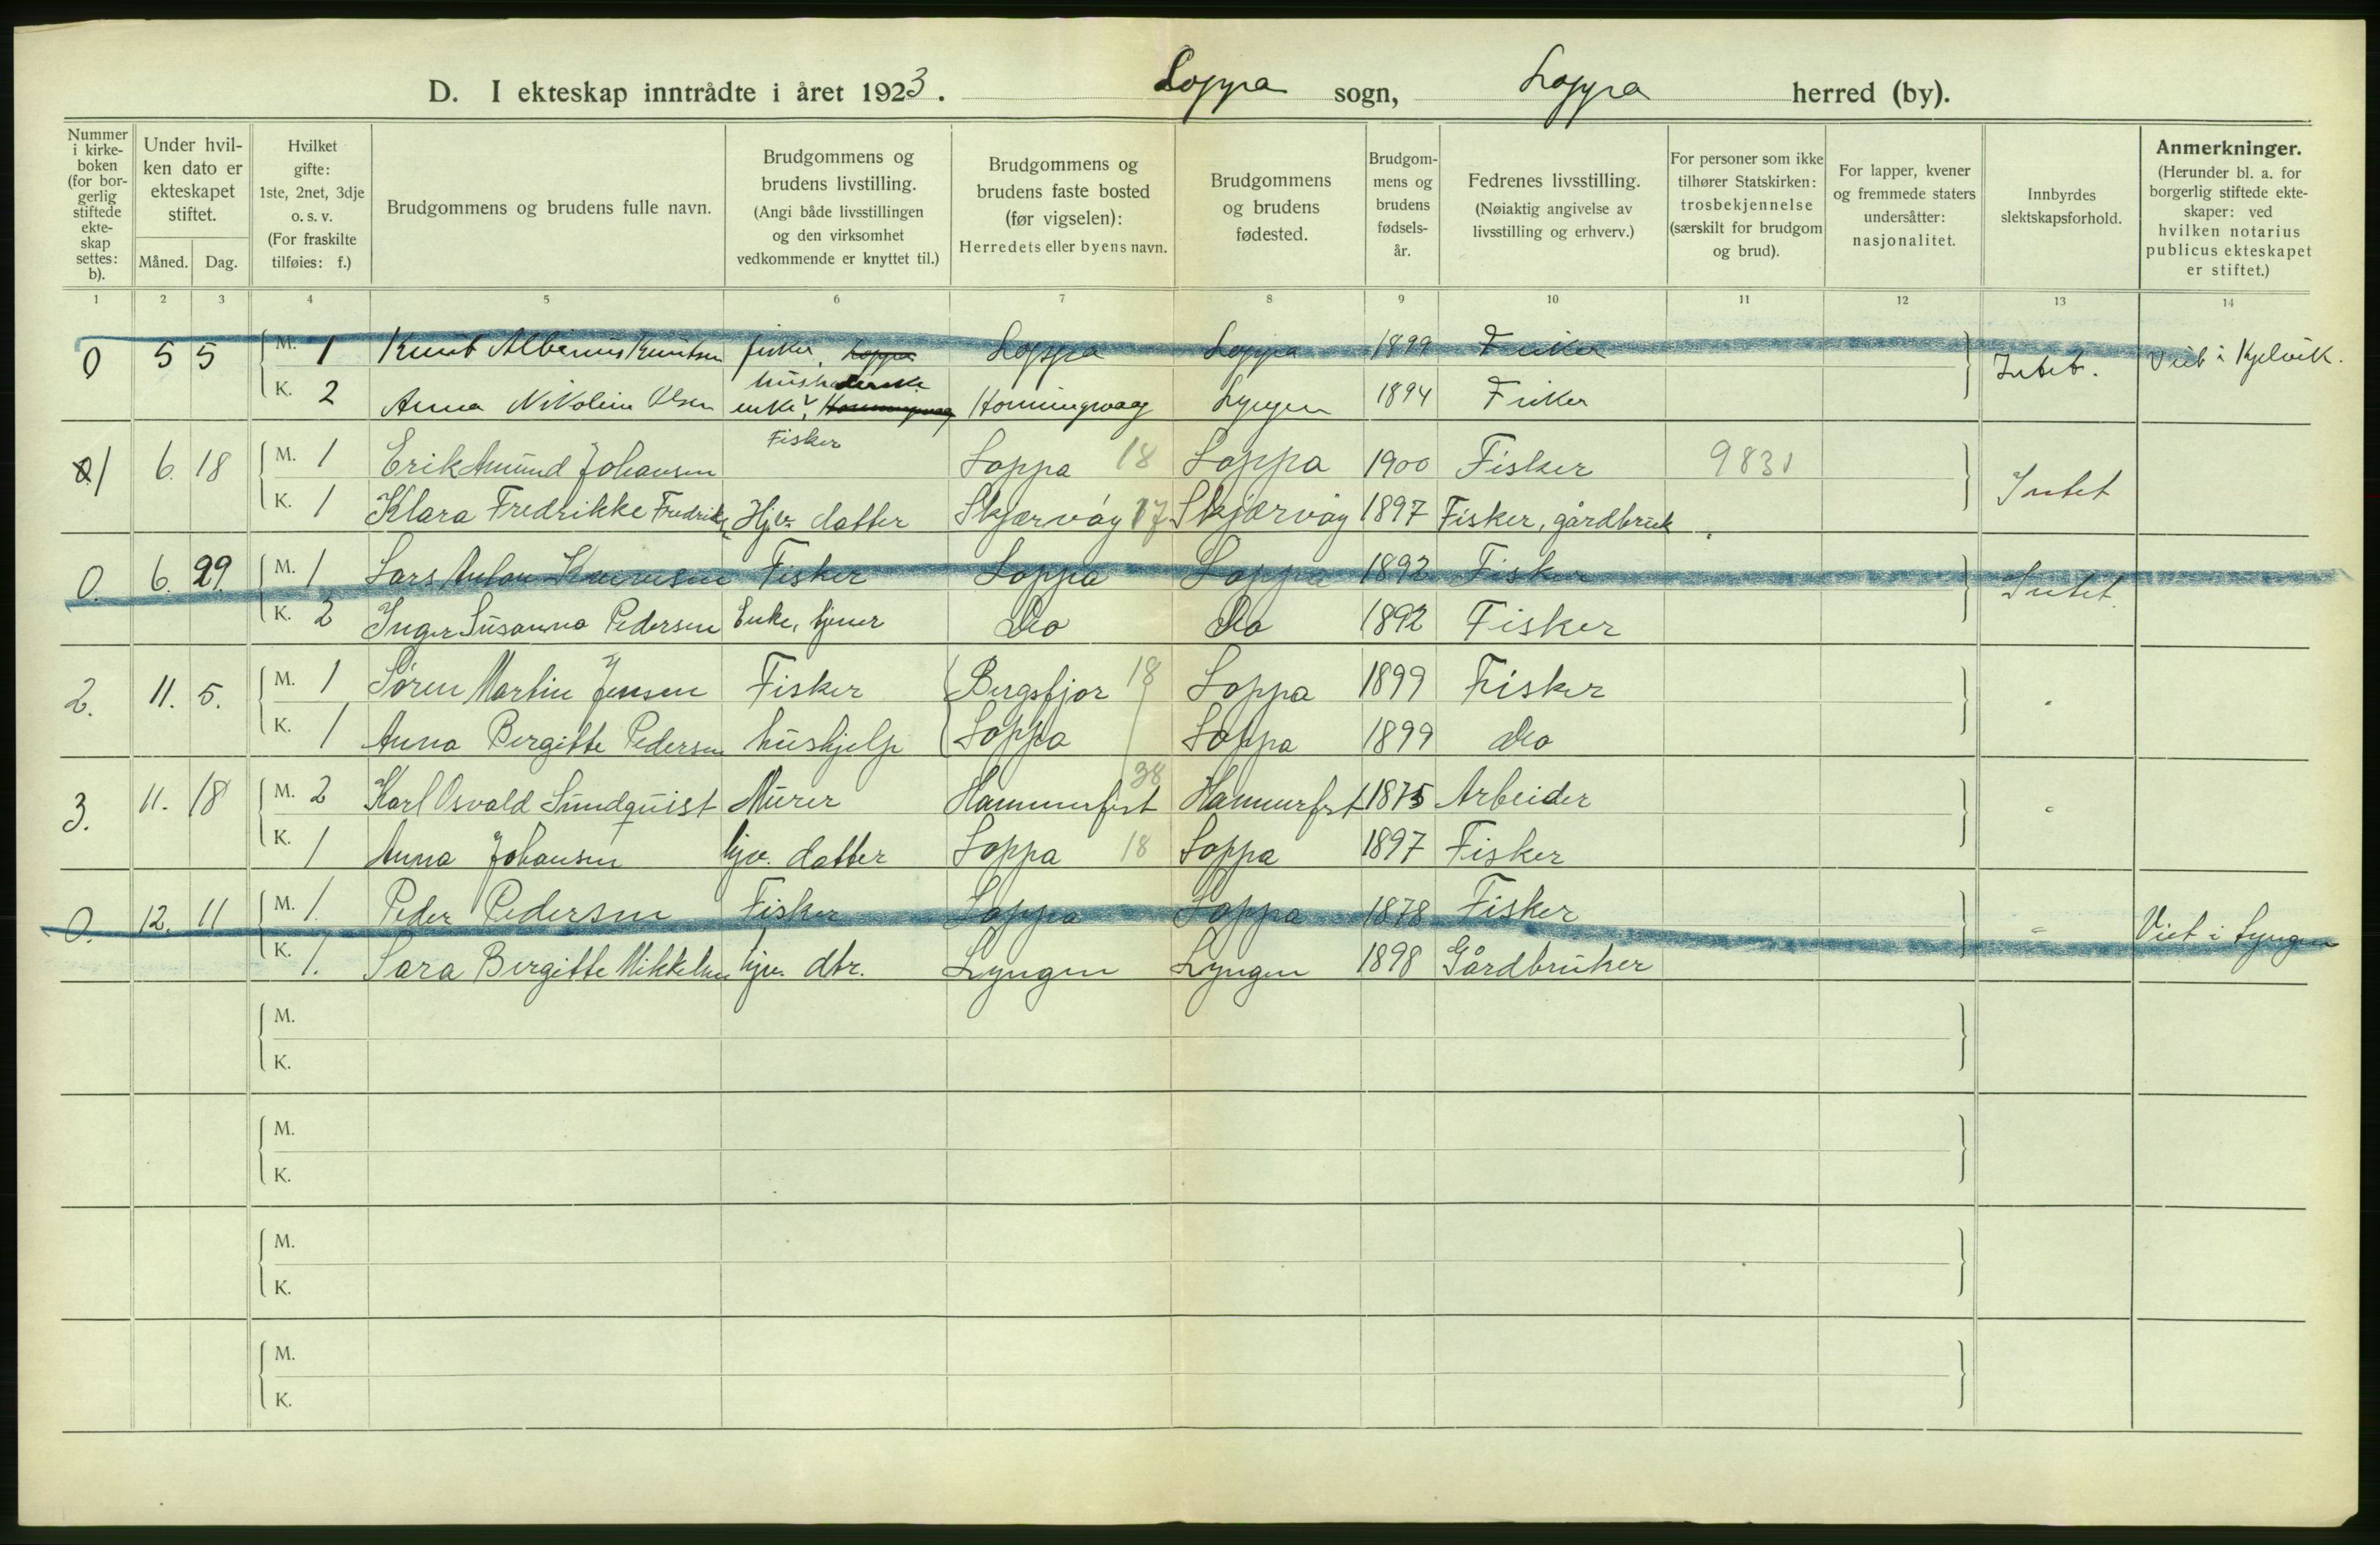 D. I ekteskap inntrådte i året 1923. Loppa sogn, Loppa herred (by).
Nummer i kirke-boken (for bor-gerlig stiftede ekte-skap settes: b).
Under hvil-ken dato er ekteskapet stiftet.
Måned. Dag.
Hvilket gifte: 1ste, 2net, 3dje o. s. v. (For fraskilte tilføies: f.)
Brudgommens og brudens fulle navn.
Brudgommens og brudens livstilling. (Angi både livsstillingen og den virksomhet vedkommende er knyttet til.)
Brudgommens og brudens faste bosted (før vigselen): Herredets eller byens navn.
Brudgommens og brudens fødested.
Brudgom-mens og brudens fødsels-år.
Fedrenes livsstilling. (Nøiaktig angivelse av livsstilling og erhverv.)
For personer som ikke tilhører Statskirken: trosbekjennelse (særskilt for brudgom og brud).
For lapper, kvener og fremmede staters undersåtter: nasjonalitet.
Innbyrdes slektskapsforhold.
Anmerkninger. (Herunder bl. a. for borgerlig stiftede ekte-skaper: ved hvilken notarius publicus ekteskapet er stiftet.)
1 2 3 4 5 6 7 8 9 10 11 12 13 14
0 5 5 M. 1 Knut Albinus Knutsen fisker, Loppa Loppa Loppa 1899 Fisker Intet. Viet i Kjelvik.
K. 2 Anna Nikoline Olsen enke, Honningvaag Honningvaag Lyngen 1894 Fisker
1 6. 18 M. 1 Erik Amund Johansen Fisker Loppa 18 Loppa 1900 Fisker 9831 Intet
K. 1 Klara Fredrikke Fredriks Hjv. datter Skjærvöy 17 Skjærvöy 1897 Fisker, gårdbruk.
0. 6. 29. M. 1 Lars Anton Fisker Loppa Loppa 1892 Fisker Intet.
K. 2 Inger Susanna Pedersen Enke, tjener Do Do 1892 Fisker
2. 11. 5. M. 1 Sören Martin Jensen Fisker Bergsfjor 18 Loppa 1899 Fisker "
K. 1 Anna Bergitte Pedersen hushjelp Loppa Loppa 1899 Do
3. 11. 18 M. 2 Karl Osvald Sundquist Murer Hammerfest 38 Hammerfest 1875 Arbeider "
K. 1 Anna Johansen hjv. datter Loppa 18 Loppa 1897 Fisker
0. 12. 11 M. 1. Peder Pedersen Fisker Loppa Loppa 1878 Fisker " Viet i Lyngen
K. 1. Sara Bergitte Mikkelsen hjv. dtr. Lyngen Lyngen 1898 Gårdbruker
M.
K.
M.
K.
M.
K.
M.
K.